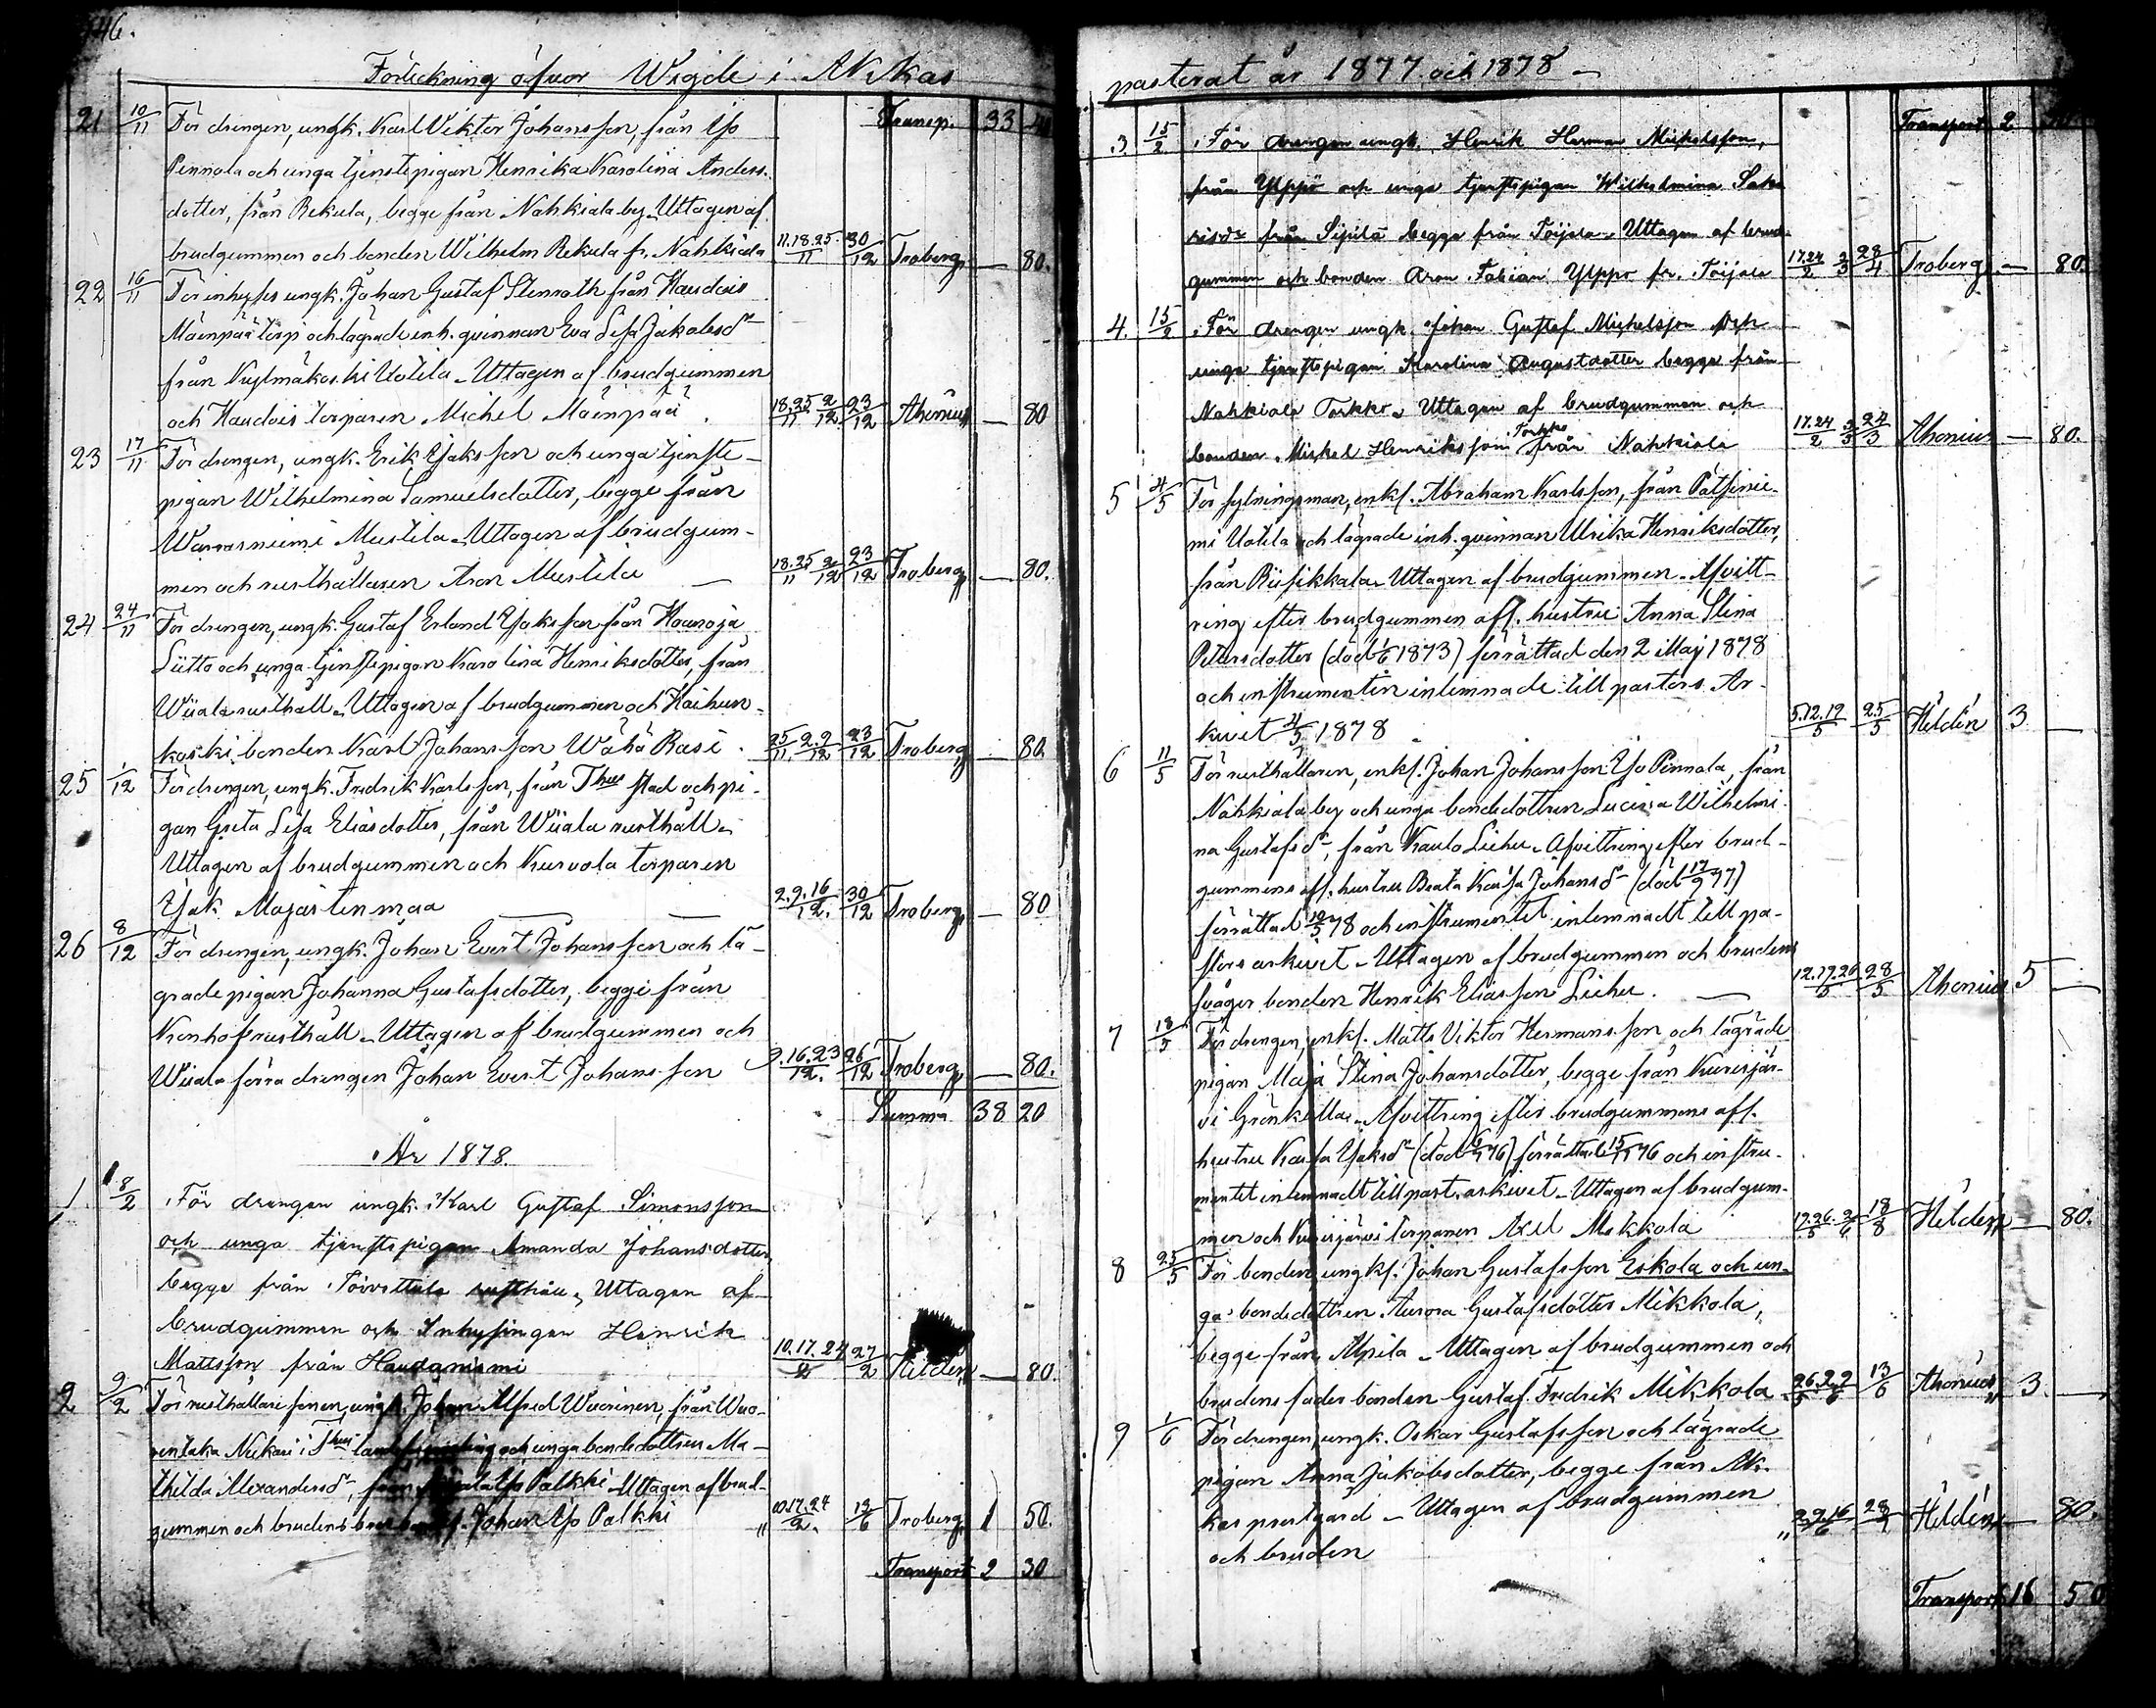 46.
Förteckning öfver Wigde i Akkas
Transp. 33
21 10/11 För drengen, ungk. Karl Viktor Johansson, från Yso
Pennola och unga tjenstepigan Henrika Karolina Anders-
dotter, från Rekula, begge från Nahkiala by. Uttagen af
brudgummen och bonden Wilhelm Rekula fr. Nahkiala 11.18.25/11 30/12 Troberg — 80.
22 16/11 För inhyses ungk. Johan Gustaf Stenroth från Haudois
Mäenpää torp och lägrade inh. qvinnan Eva Lisa Jakobsdr
från Kylmäkoski Uotila. Uttagen af brudgummen
och Haudois torparen Michel Mäenpää. 18.25/11 2/12 23/12 Ahonius — 80
23 17/11 För drengen, ungk. Erik Isaksson och unga tjenste-
pigan Wilhelmina Samuelsdotter, begge från
Warrasniemi Mustila. Uttagen af brudgum-
men och rusthållaren Aron Mustila — 18.25/11 2/12 23/12 Troberg — 80.
24 24/11 För drengen, ungk. Gustaf Erland Isaksson från
Liitto och unga tjenstepigan Karolina Henriksdotter, från
Wiiala rusthåll. Uttagen af brudgummen och Kaihun-
koski bonden Karl Johansson Wähä Rasi. 25/11 2.9/12 23/12 Troberg — 80
25 1/12 För drengen, ungk. Fredrik Karlsson, från Thus stad och pi-
gan Greta Lisa Eliasdotter, från Wiiala rusthåll.
Uttagen af brudgummen och Kurvola torparen
Isak Majastenmaa — 2.9.16/12. 30/12 Troberg — 80
26 8/12 För drengen, ungk. Johan Evert Johansson och lä-
grade pigan Johanna Gustafsdotter, begge från
Konho rusthåll. Uttagen af brudgummen och
Wiiala förra drengen Johan Evert Johansson 9.16.23/12. 26/12 Troberg — 80.
Summa 38 20
År 1878.
1 8/2 För drengen ungk. Karl Gustaf Simonsson
och unga tjenstepigan Amanda Johansdotter,
begge från Toivottula rusthåll. Uttagen af
brudgummen och Inhysingen Henrik
Mattsson från Haudaniemi 10.17.24/2 27/2 Hildén — 80.
2 9/2 För rusthållaresonen, ungk. Johan Alfred Wuorinen, från Wuo-
rentaka Nikkari i Thus och unga bondedottren Ma-
thilda Alexandersdr, från Yso Palkki. Uttagen af brud-
gummen och brudens Johan Yso Palkki 10.17.24/2. 12/6 Troberg 1 50.
Transport 2 30
pastorat år 1877 och 1878 —
Transport 2
3. 15/2 För drengen ungk. Henrik Herman Mickelsson,
från Ylppö och unga tjenstepigan Wilhelmina Saka
risdr från Sipilä begge från Toijala. Uttagen af brud-
gummen och bonden Aron Fabian Ylppö fr. Toijala 17.24/2 3/3 28/4 Troberg — 80.
4. 15/2 För drengen ungk. Johan Gustaf Michelsson och
unga tjenstepigan Karolina Augustdotter begge från
Nahkiala Torkko. Uttagen af brudgummen och
bonden Michel Henriksson Torkko från Nahkiala 17.24/2 3/3 24/3 Ahonius — 80.
5 4/5 För fylningsman, enkl. Abraham Karlsson, från Pätsinie-
mi Uotila och lägrade inh. qvinnan Ulrika Henriksdotter,
från Riisikkala. Uttagen af brudgummen. Afvitt-
ring efter brudgummen afl. hustru Anna Stina
Petersdotter (död 1/6 1873) förrättad den 2 Maj 1878
och instrumenten inlemnade till pastors Ar-
kivet 4/5 1878. 5.12.19/5 25/5 Hildén 3. —
6 11/5 För rusthållaren, enkl. Johan Johansson Yso Pennola, från
Nahkiala by och unga bondedottren Lucina Wilhelmi-
na Gustafsdr, från Kaulo Liehu. Afvittring efter brud-
gummens afl. hustru Beata Kaisa Johansdr (död 17/9 77)
förrättad 10/5 78 och instrumentet inlemnadt till pa-
stors arkivet. Uttagen af brudgummen och brudens
svåger bonden Henrik Eliasson Liehu. — 12.19.26/5 28/5 Ahonius 5 —
7 18/5 För drengen, enkl. Matts Viktor Hermansson och lägrade
pigan Maja Stina Johansdotter, begge från Kurisjär-
vi Grönkulla. Afvittring efter brudgummens afl.
hustru Kaisa Isaksdr (död 76) förrättad 15/11 76 och instru-
mentet inlemnadt till past. arkivet. Uttagen af brudgum-
men och Kurisjärvi torparen Axel Mikkola 19.26/5 2/6 18/8 Hildén — 80.
8 25/5 För bonden, ungkl. Johan Gustafsson Eskola och un-
ga bondedottren Aurora Gustafsdotter Mikkola,
begge från Alpila. Uttagen af brudgummen och
brudens fader bonden Gustaf Fredrik Mikkola 26/5 2.9/6 13/6 Ahonius 3. —
9 1/6 För drengen, ungk. Oskar Gustafsson och lägrade
pigan Anna Jakobsdotter, begge från Ak-
kas prestgård. Uttagen af brudgummen
och bruden 2.9.16/6 Hildén — 80.
Transport 16 50